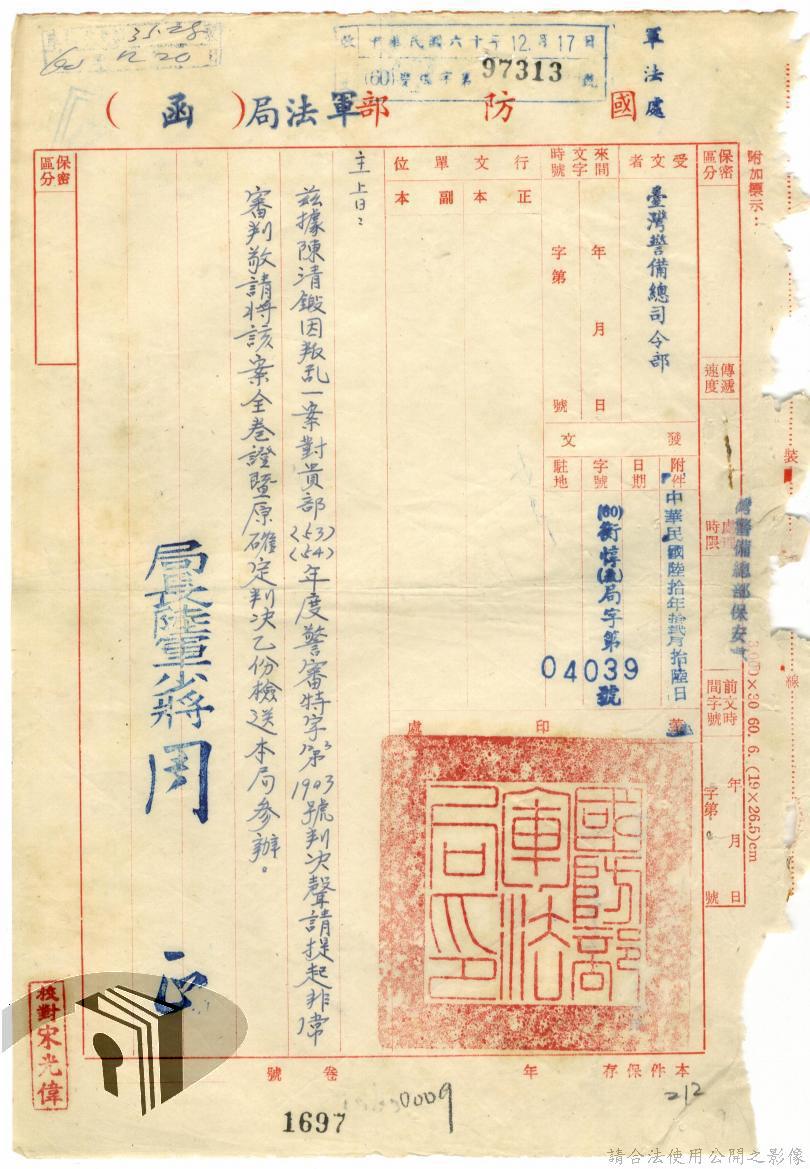 軍法處
收 中華民國六十年12月17日
(60)警保字第 97313 號
3528
60 12 20
國防部軍法局(函)
附加標示：
保密區分
傳遞速度
處理時限
前文時間字號
年 月 日
字第 號
受文者
臺灣警備總司令部
來文時間字號
年 月 日
字第 號
行文單位
正本
副本
發文
附件
日期
中華民國陸拾年拾貳月拾陸日
字號
(60)衡惇(流)局字第04039號
駐地
蓋印處
國防部軍法局印
主旨：
茲據陳清鎩因叛乱一案對貴部(53)(54)年度警審特字第3 1903號判決聲請提起非常
審判敬請將該案全卷證暨原確定判決乙份檢送本局參辦。
局長陸軍少將周 正
保密區分
灣警備總部保安處
裝
線
60. 6. (19×26.5)cm
校對宋光偉
本件保存 年
卷 號
1697
0009
212
請合法使用公開之影像